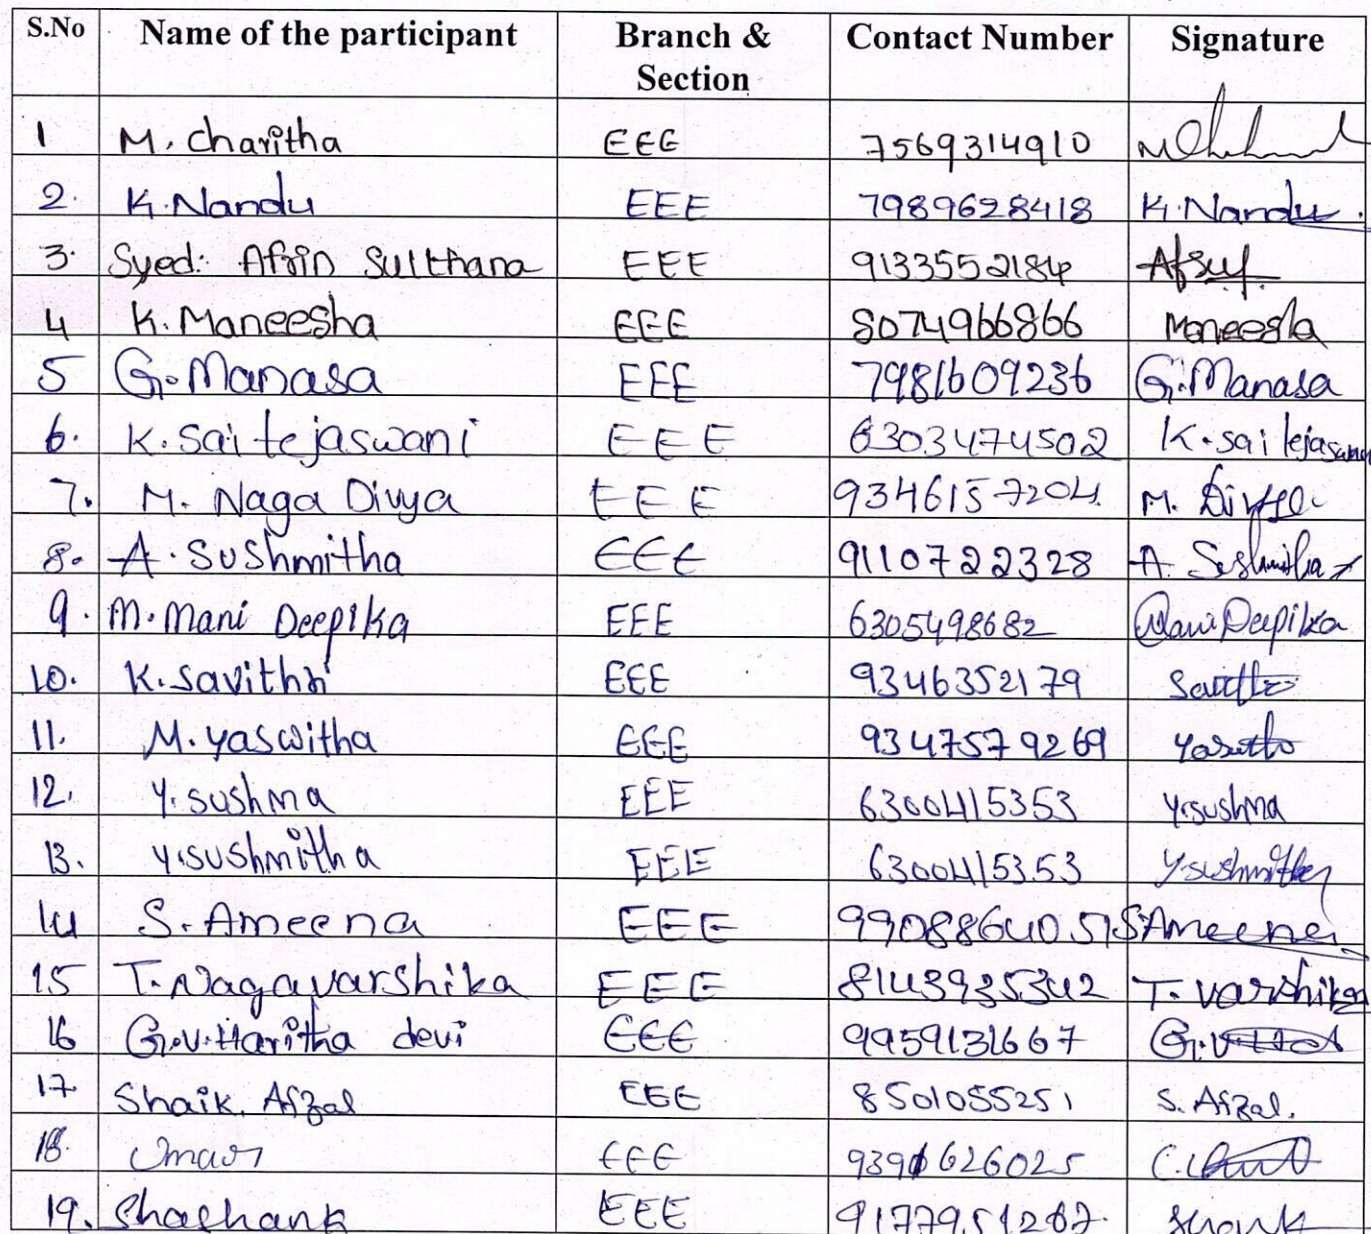 S.No Name of the participant Branch & Section Contact Number Signature
1 M. Charitha EEE 7569314910
2. K. Nandu EEE 7989628418 K. Nandu.
3. Syed: Afrin Sulthana EEE 9133552184
4 K. Maneesha EEE 8074966866 Maneesha
5 G. Manasa EEE 7981609236 G. Manasa
6. K. Sai tejaswani EEE 6303474502 K. sai tejaswani
7. M. Naga Divya EEE 9346157204 M. Divya
8. A. Sushmitha EEE 9110722328 A. Sushmitha
9. M. Mani Deepika EEE 6305498682 Mani Deepika
10. K. Savithri EEE 9346352179
11. M. Yaswitha EEE 9347579269
12. Y. sushma EEE 6300415353 Y. sushma
13. Y. sushmitha EEE 6300415353 Y. sushmitha
14 S. Ameena EEE 9908864051 S. Ameena
15 T. Nagavarshika EEE 8143935342 T. Varshika
16 G.V. Haritha devi EEE 9959131667
17 Shaik. Afzal EEE 8501055251 S. Afzal.
18. Umar EEE 9391626025
19. Shashank EEE 9177951267.